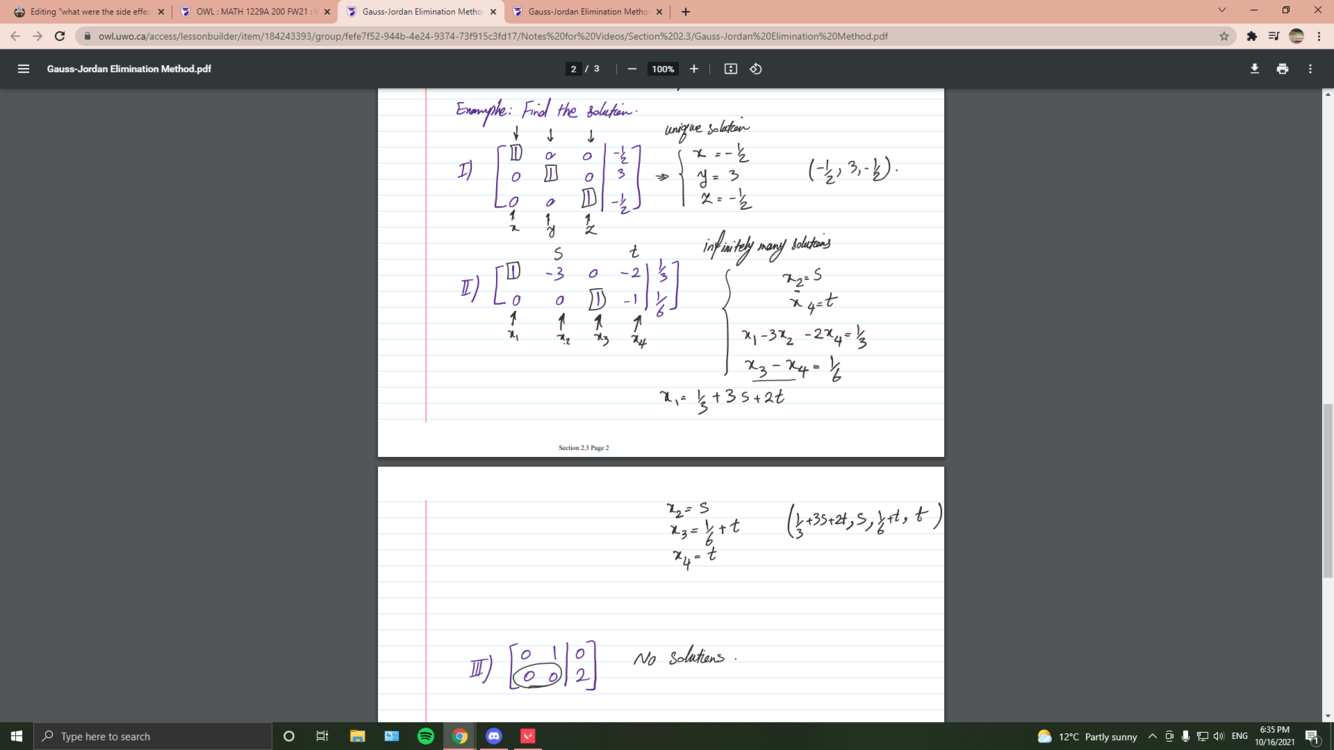 Editing "what were the side effe
OWL : MATH 1229A 200 FW21 :
Gauss-Jordan Elimination Metho
Gauss-Jordan Elimination Metho
owl.uwo.ca/access/lessonbuilder/item/184243393/group/fefe7f52-944b-4e24-9374-73f915c3fd17/Notes%20for%20Videos/Section%202.3/Gauss-Jordan%20Elimination%20Method.pdf
Gauss-Jordan Elimination Method.pdf
2 / 3
100%
Example: Find the solution.
unique solution
I) [1 0 0 | -1/2] ⇒ { x = -1/2 (-1/2, 3, -1/2).
[0 1 0 | 3] y = 3
[0 0 1 | -1/2] z = -1/2
x y z
infinitely many solutions
s t
II) [1 -3 0 -2 | 1/3] { x2 = s
[0 0 1 -1 | 1/6] x4 = t
x1 x2 x3 x4 x1 - 3x2 - 2x4 = 1/3
x3 - x4 = 1/6
x1 = 1/3 + 3s + 2t
Section 2.3 Page 2
x2 = s
x3 = 1/6 + t (1/3 + 3s + 2t, s, 1/6 + t, t)
x4 = t
III) [0 1 | 0] No solutions.
[0 0 | 2]
Type here to search
12°C Partly sunny
ENG
6:35 PM
10/16/2021
1